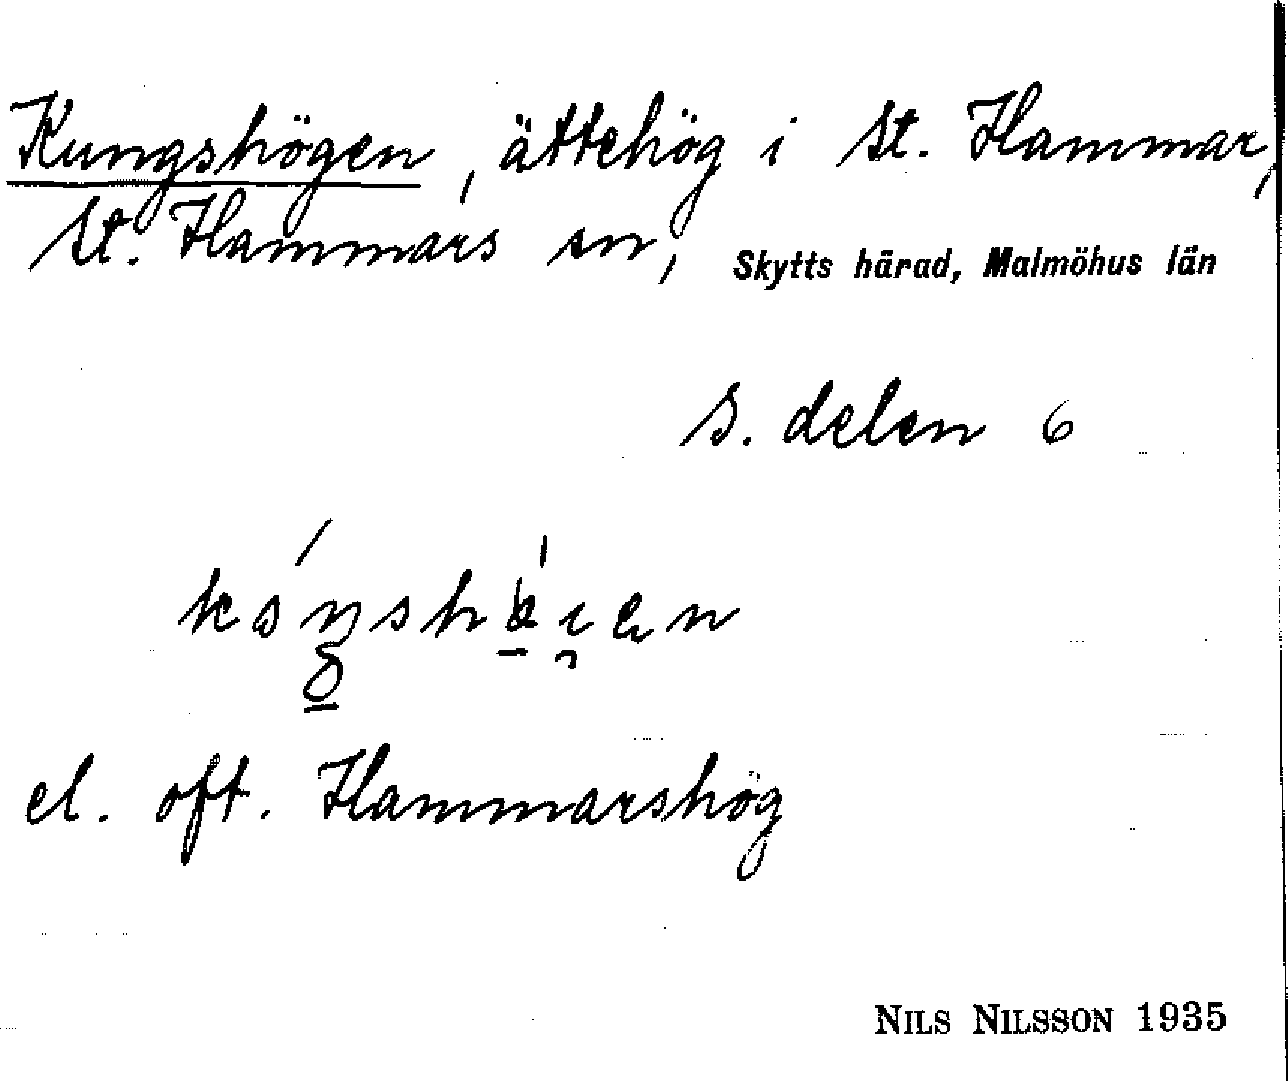 Kungshögen, ättehög i St. Hammar,
St. Hammars sn, Skytts härad, Malmöhus län
S. delen 6
el. oft. Hammarshög
NILS NILSSON 1935